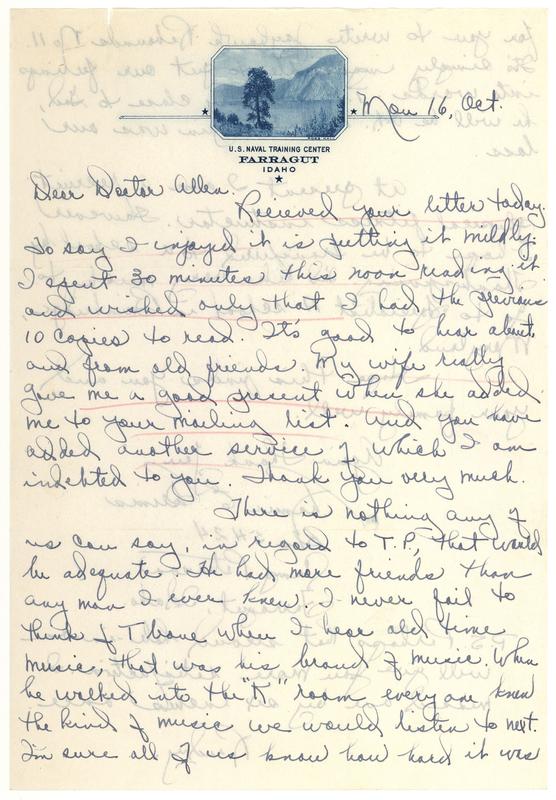 Mon 16, Oct.
U.S. NAVAL TRAINING CENTER
FARRAGUT
IDAHO
Dear Doctor Allen.
Recieved your letter today.
To say I injoyed it is putting it mildly.
I spent 30 minutes this noon reading it
and wished only that I had the previous
10 copies to read. It's good to hear about
and from old friends. My wife really
gave me a good present when she added
me to your mailing list. And you have
added another service of which I am
indebted to you. Thank you very much.
There is nothing any of
us can say, in regard to T.P., that would
be adequate. He had more friends than
any man I ever knew. I never fail to
think of T bone when I hear old time
music, that was his brand of music. When
he walked into the "K" room everyone knew
the kind of music we would listen to next.
I'm sure all of us know how hard it was